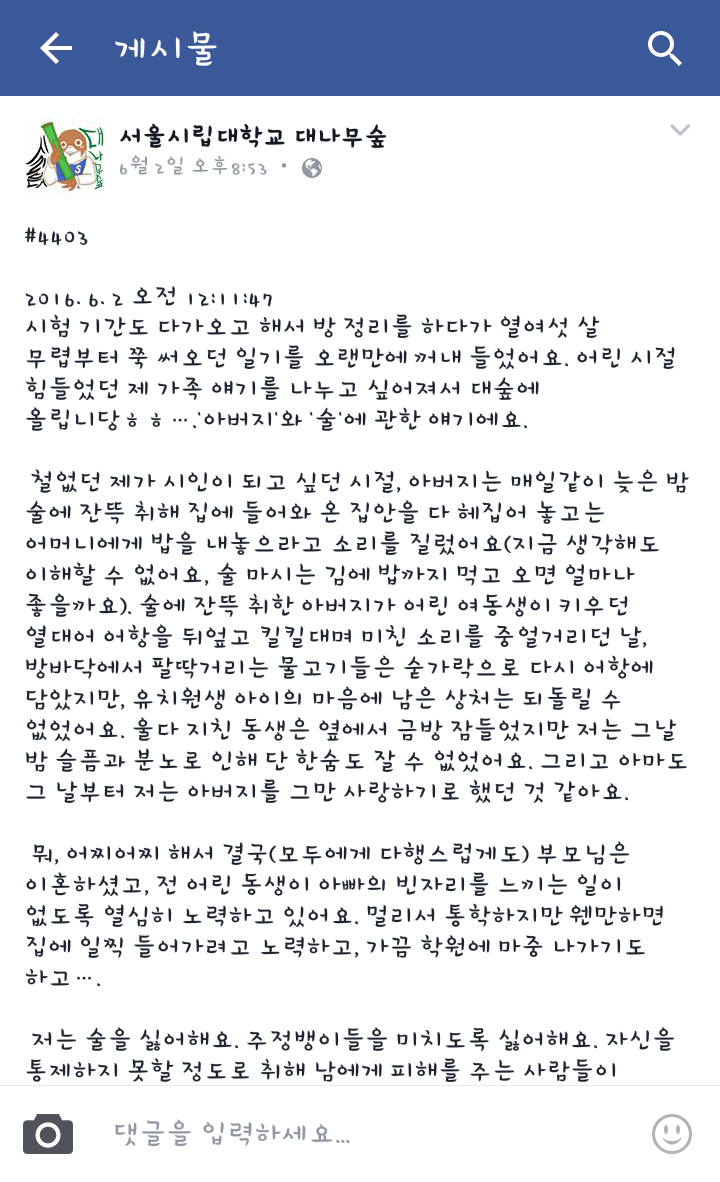 게시물
서울시립대학교 대나무숲
6월 2일 오후 8:53 •
#4403
2016. 6. 2 오전 12:11:47
시험 기간도 다가오고 해서 방 정리를 하다가 열여섯 살
무렵부터 쭉 써오던 일기를 오랜만에 꺼내 들었어요. 어린 시절
힘들었던 제 가족 얘기를 나누고 싶어져서 대숲에
올립니당ㅎㅎ….'아버지'와 '술'에 관한 얘기에요.
철없던 제가 시인이 되고 싶던 시절, 아버지는 매일같이 늦은 밤
술에 잔뜩 취해 집에 들어와 온 집안을 다 헤집어 놓고는
어머니에게 밥을 내놓으라고 소리를 질렀어요(지금 생각해도
이해할 수 없어요, 술 마시는 김에 밥까지 먹고 오면 얼마나
좋을까요). 술에 잔뜩 취한 아버지가 어린 여동생이 키우던
열대어 어항을 뒤엎고 킬킬대며 미친 소리를 중얼거리던 날,
방바닥에서 팔딱거리는 물고기들은 숟가락으로 다시 어항에
담았지만, 유치원생 아이의 마음에 남은 상처는 되돌릴 수
없었어요. 울다 지친 동생은 옆에서 금방 잠들었지만 저는 그날
밤 슬픔과 분노로 인해 단 한숨도 잘 수 없었어요. 그리고 아마도
그 날부터 저는 아버지를 그만 사랑하기로 했던 것 같아요.
뭐, 어찌어찌 해서 결국(모두에게 다행스럽게도) 부모님은
이혼하셨고, 전 어린 동생이 아빠의 빈자리를 느끼는 일이
없도록 열심히 노력하고 있어요. 멀리서 통학하지만 웬만하면
집에 일찍 들어가려고 노력하고, 가끔 학원에 마중 나가기도
하고….
저는 술을 싫어해요. 주정뱅이들을 미치도록 싫어해요. 자신을
통제하지 못할 정도로 취해 남에게 피해를 주는 사람들이
댓글을 입력하세요...